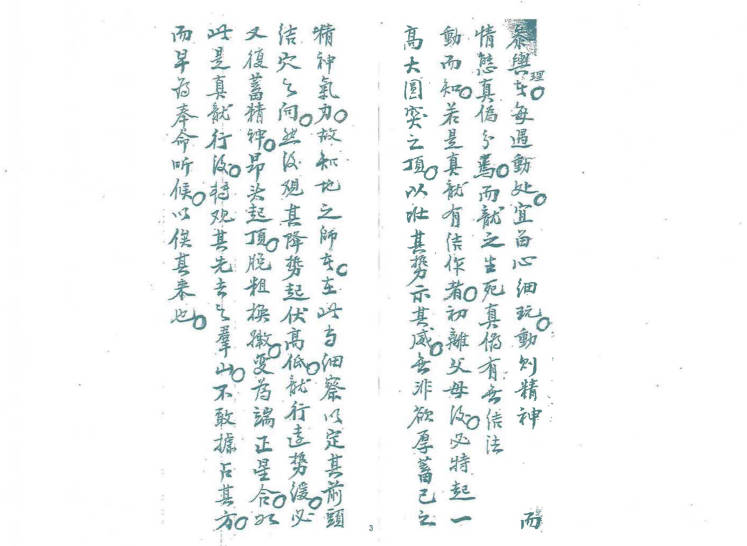 參輿理在每過動處宜留心細玩動則精神
而
情態真偽分焉而龍之生死真偽有無結法
動而知若是真龍有結作者初離父母後必特起一
高大圓突之頂以壯其勢示其威無非欲厚蓄己之
精神氣力故知地之師在在此與細察以定其前頭
結穴之向然後覘其降勢起伏高低龍行遠勢緩必
又復蓄精神昂头起頂脫粗換微变為端正星合
此是真龍行後特观其先去之羣山不敢據占其方
而早為奉命听候以俟其来也
3